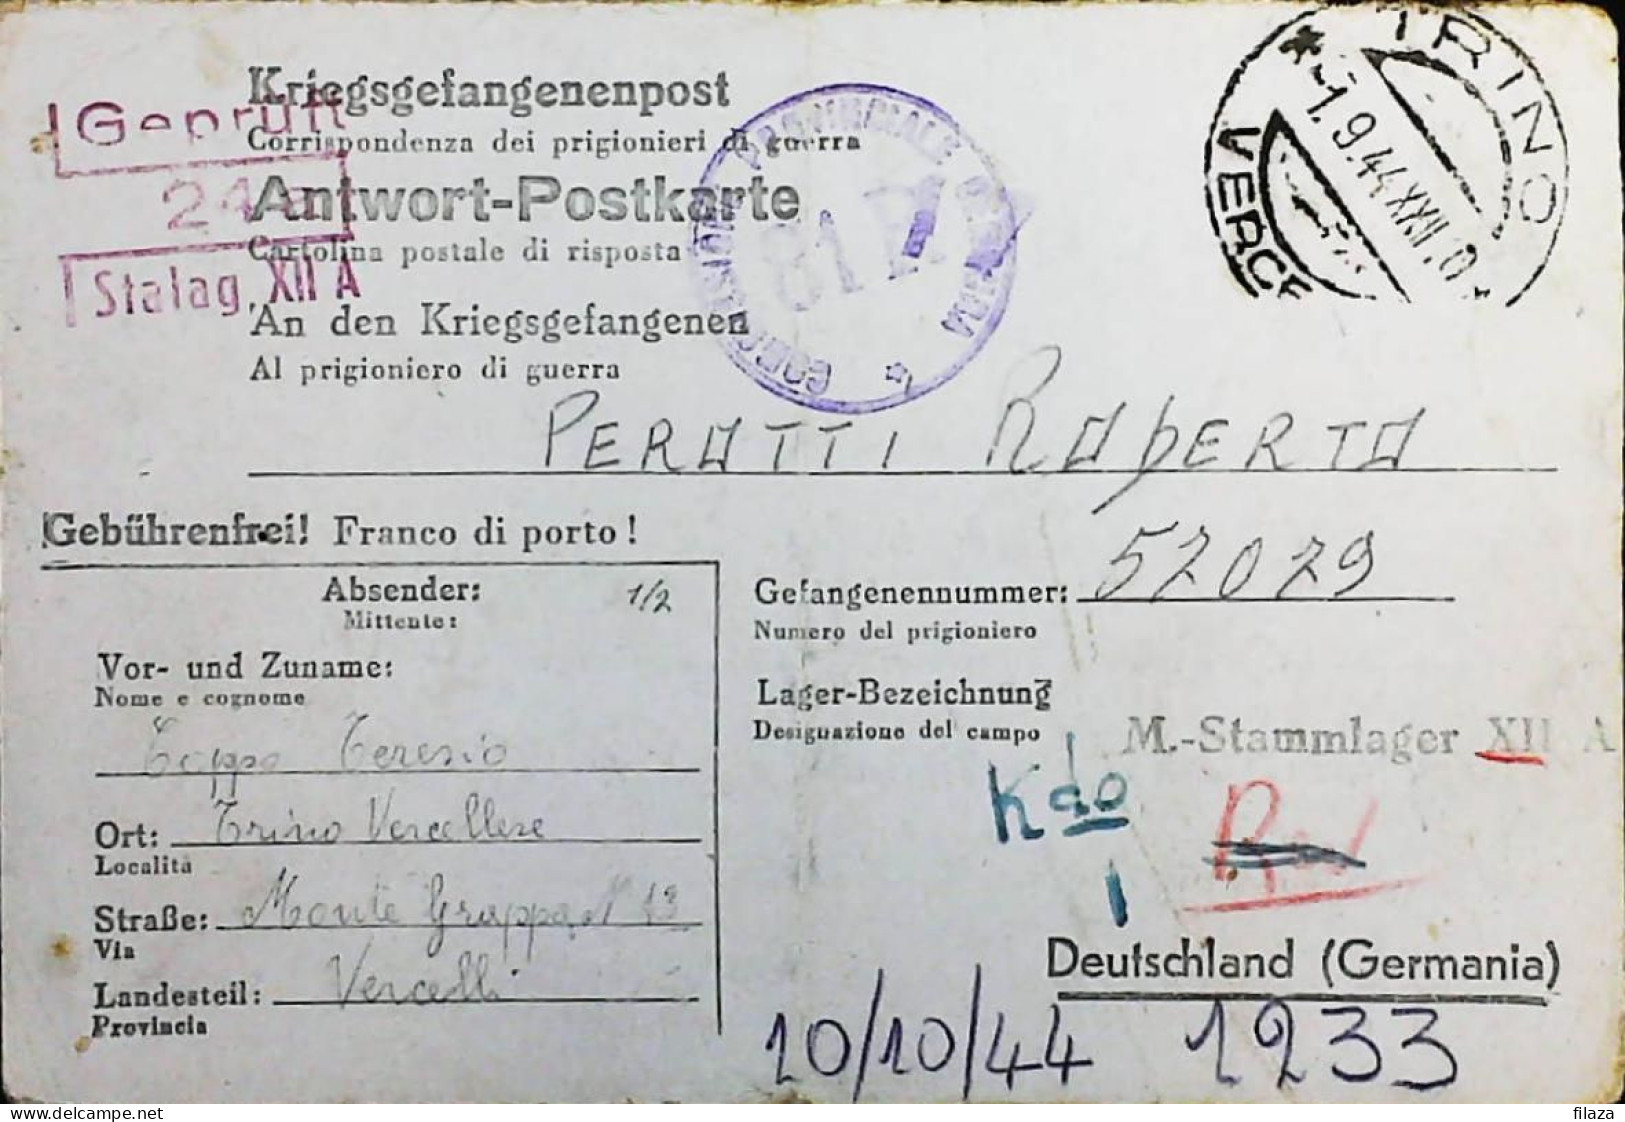 Kriegsgefangenenpost
Corrispondenza dei prigionieri di guerra
Antwort-Postkarte
Cartolina postale di risposta
An den Kriegsgefangenen
Al prigioniero di guerra
Geprüft
24
Stalag XII A
COMMISSIONE PROVINCIALE CENSURA
81 R
TRINO
VERCE
-1.9.44 XXII
PEROTTI ROBERTO
Gebührenfrei! Franco di porto!
Absender: 1/2
Mittente:
Vor- und Zuname:
Nome e cognome
Coppo Teresio
Ort: Trino Vercellese
Località
Straße: Monte Grappa N 13
Via
Landesteil: Vercelli
Provincia
Gefangenennummer: 52029
Numero del prigioniero
Lager-Bezeichnung
Designazione del campo
M.-Stammlager XII A
Kdo
1
Deutschland (Germania)
10/10/44 1233
filaza